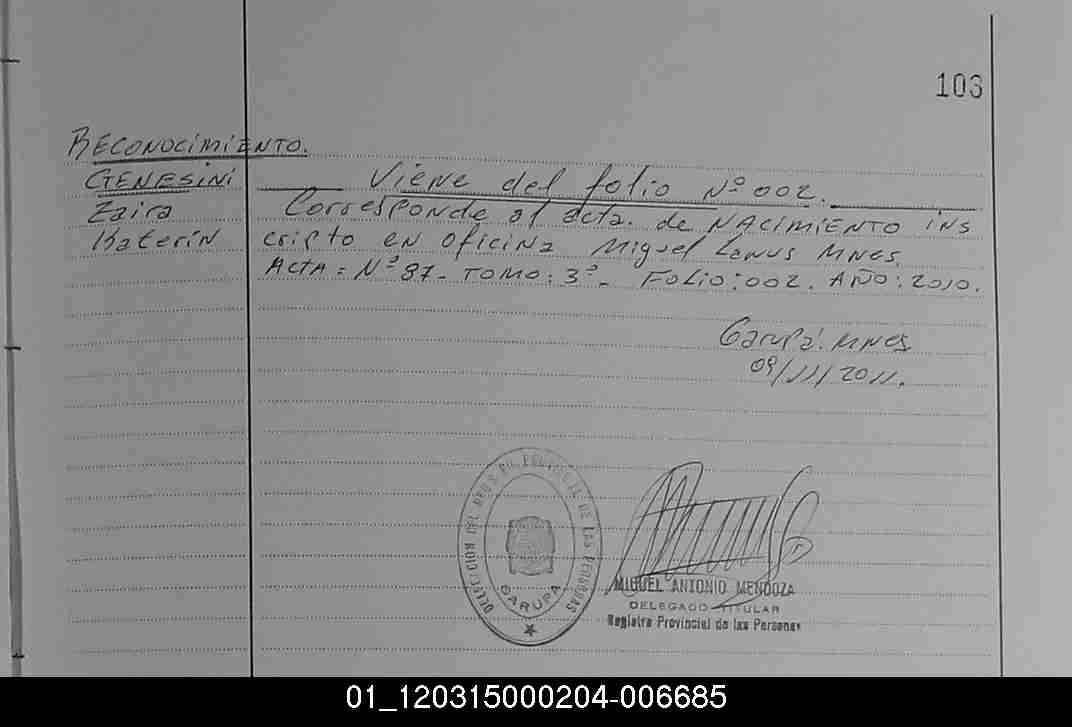 103
RECONOCIMIENTO.
GENESINI
Zaira
Katerin
Viene del folio Nº 002.
Corresponde al acta de NACIMIENTO ins
cripto en oficina Miguel Lanus MNES.
ACTA = Nº 87 - TOMO: 3º - FOLIO: 002. AÑO: 2010.
Garupá. MNES
09/11/2011.
DELEGACION DEL REGISTRO PROVINCIAL DE LAS PERSONAS
GARUPA
MIGUEL ANTONIO MENDOZA
DELEGADO TITULAR
Registro Provincial de las Personas
01_120315000204-006685